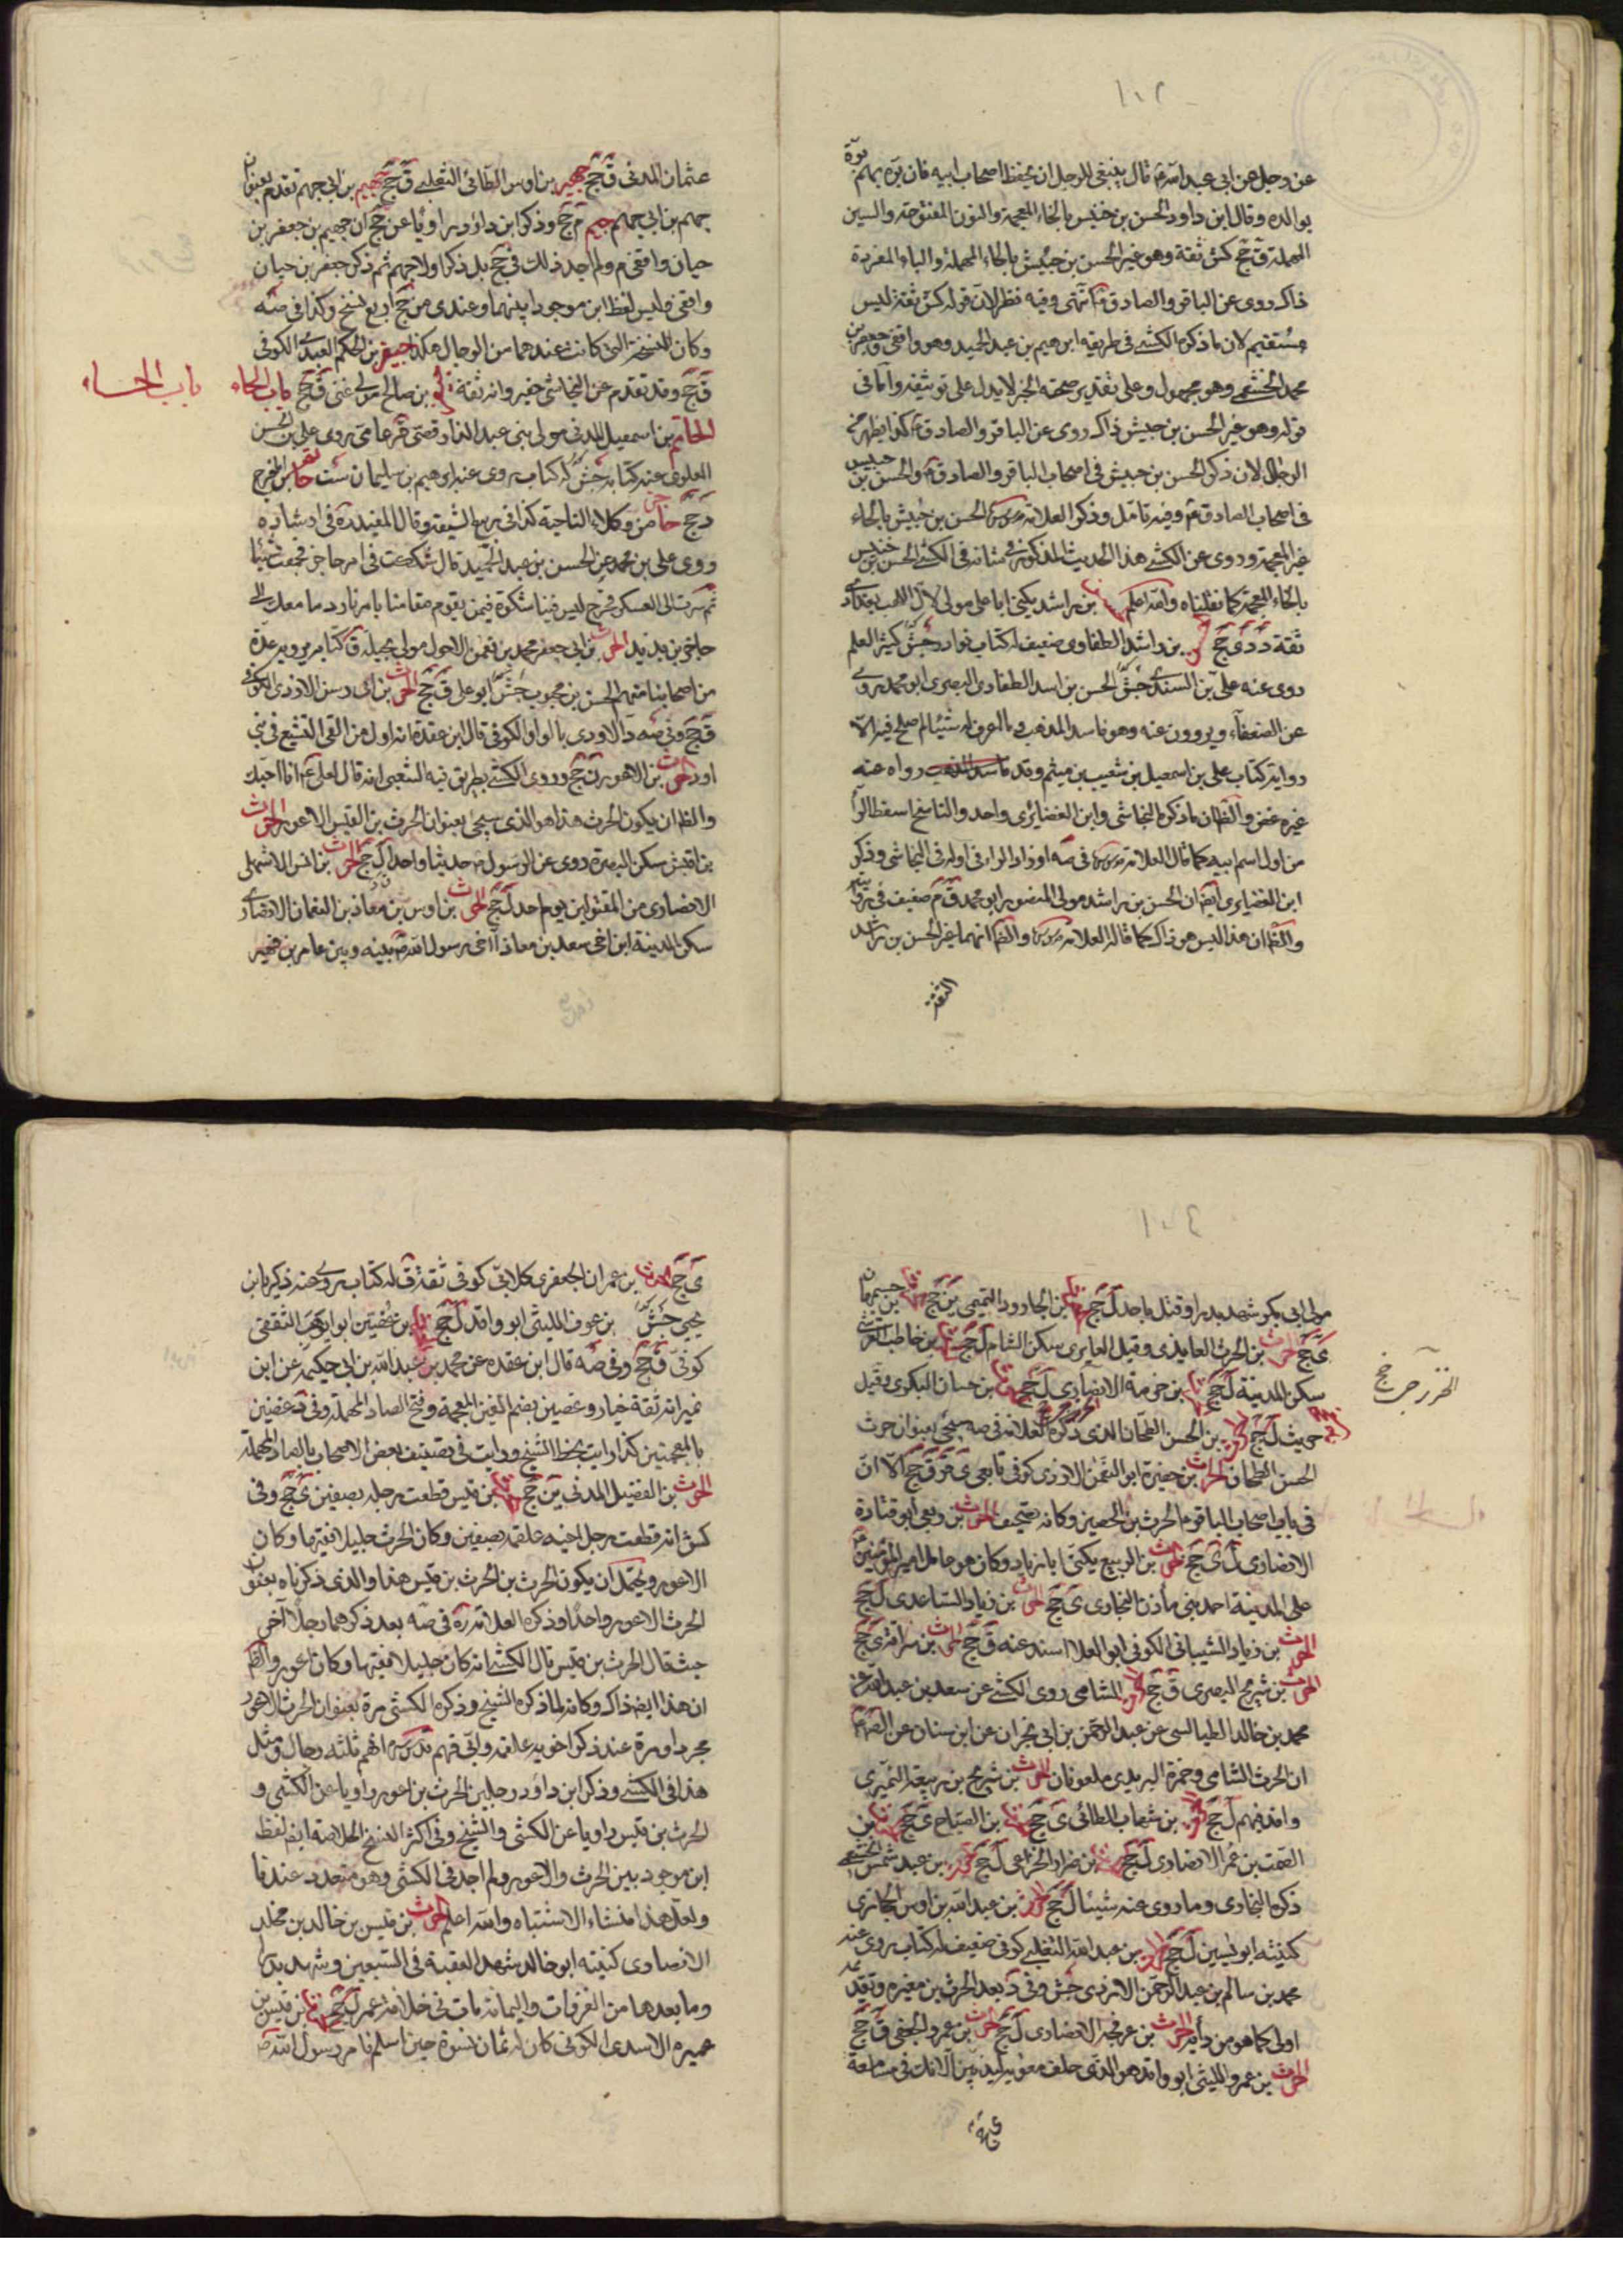 ١٠٢
عن رجل عن ابى عبد الله ع قال ينبغى للرجل ان يحفظ اصحاب ابيه فان بره بهم بره
بوالده وقال ابن داود الحسن بن خنيس بالخاء المعجمة والنون المفتوحة والسين
المهملة ق جخ كش ثقة وهو غير الحسن بن حبيش بالحاء المهملة والباء المفردة
ذاك روى عن الباقر والصادق ع انتهى وفيه نظر لان قوله كش ثقة ليس
مستقيم لان ما ذكره الكشى فى طريقه ابرهيم بن عبد الحميد وهو واقفى وجعفر بن
محمد الخثعمى وهو مجهول وعلى تقدير صحة الخبر لا يدل على توثيقه واما فى
قوله وهو غير الحسن بن حبيش ذاك روى عن الباقر والصادق ع كذا يظهر من
الرجال لان ذكر الحسن بن حبيش فى اصحاب الباقر والصادق ع والحسن بن خنيس
فى اصحاب الصادق ع وفيه تامل وذكر العلامة قدس سره الحسن بن حبيش بالحاء
غير المعجمة وروى عن الكشى هذا الحديث المذكور فى شانه وفى الكشى الحسن بن خنيس
بالخاء المعجمة كما نقلناه والله اعلم بن راشد يكنى ابا على مولى لال المهلب بغدادى
ثقة د دى جخ بن راشد الطفاوى ضعيف له كتاب نوادر جش كثير العلم
روى عنه على بن السندى جش الحسن بن اسد الطفاوى البصرى ابو محمد يروى
عن الضعفاء ويروون عنه وهو فاسد المذهب وما اعرف له شيئا اصلح فيه الا
رواية كتاب على بن اسمعيل بن شعيب بن ميثم وقد رواه عنه
غيره غض والظ ان ما ذكره النجاشى وابن الغضائرى واحد والناسخ اسقط الرا
من اول اسم ابيه كما قال العلامة قدس سره فى صه او زاد الراء فى اوله فى النجاشى وذكر
ابن الغضايرى ايضا ان الحسن بن راشد مولى المنصور ابو محمد ق م ضعيف فى روايته
والظ ان هذا ليس هو ذاك كما قاله العلامة قدس سره والظ انهما غير الحسن بن راشد
الثقة
عثمان المدنى ق جخ جهير بن اوس الطائى الثعلبى ق جخ جهيم بن ابى جهم تقدم بعنوان
جهم بن ابى جهم جيم م جخ وذكر ابن داود راويا عن جخ ان جهيم بن جعفر بن
حيان واقفى م ولم اجد ذلك فى جخ بل ذكر اولا جهم ثم ذكر جعفر بن حيان
واقفى وليس لفظ ابن موجودا بينهما وعندى من جخ اربع نسخ وكذا فى صه
وكان النسخة التى كانت عندهما من الرجال هكذا جيفر بن الحكم العبدى الكوفى
ق جخ وقد تقدم عن النجاشى جفير وانه ثقة بن صالح مولى غنى ق جخ باب الحاء
باب الحاء
الحاتم بن اسمعيل المدنى مولى بنى عبد الدار ق جخ عامى روى على بن الحسن
العلوى عنه كتابه جش له كتاب روى عنه ابرهيم بن سليمان ست حاتم بن الفرج
د جخ حاجز من وكلاء الناحية كذا فى ربيع الشيعة وقال المفيد ره فى ارشاده
وروى على بن محمد عن الحسن بن عبد الحميد قال شككت فى امر حاجز فجمعت شيئا
ثم صرت الى العسكر فخرج ليس فينا شك ولا فيمن يقوم مقامنا بامرنا رد ما معك الى
حاجز بن يزيد الحرث بن ابى جعفر محمد بن النعمن الاحول مولى بجيلة ق كتابه يرويه عدة
من اصحابنا منهم الحسن بن محبوب جش ابو على ق جخ الحرث بن ابى رسن الاودى الكوفى
ق جخ وفى صه د الاودى بالواو الكوفى قال ابن عقدة انه اول من القى التشيع فى بنى
اود الحرث بن الاعور ن جخ وروى الكشى بطريق فيه الشعبى انه قال لعلى ع انا احبك
والظ ان يكون الحرث هذا هو الذى سيجئ بعنوان الحرث بن القيس الاعور الحرث
بن اقيش سكن البصرة روى عن الرسول ص حديثا واحدا ل جخ الحرث بن انس الاشهلى
الانصارى من المقتولين يوم احد ل جخ الحرث بن اوس بن معاذ بن النعمان الانصارى
سكن المدينة ابن اخى سعد بن معاذ اخى رسول الله ص بينه وبين عامر بن فهيرة
١٠٤
مولى ابى بكر شهد بدرا وقتل باحد ل جخ بن الجارود التيمى ين جخ بن جميهان
ى جخ الحرث بن الحرث الغامدى وقيل العايرى سكن الشام ل جخ بن خاطب القرشى
سكن المدينة ل جخ بن خزمة الانصارى ل جخ بن حسان البكرى وقيل
حريث ل جخ بن الحسن الطحان الذى ذكره العلامة فى صه سيجئ بعنوان حرث
الخزرجى خ
الحسن الطحان الحارث بن حضيرة ابو النعمن الازدى كوفى تابعى ى ق ر ق جخ الا ان
فى باب اصحاب الباقر ع الحرث بن الحصين وكانه تصحيف الحرث بن ربعى ابو قتادة
الانصارى ل ى جخ الحرث بن الربيع يكنى ابا زياد وكان هو عامل امير المؤمنين ع
على المدينة احد بنى مازن النجارى ى جخ الحرث بن زياد الساعدى ل جخ
الحرث بن زياد الشيبانى الكوفى ابو العلا اسند عنه ق جخ الحرث بن سراقة ى جخ
الحرث بن شريح البصرى ق جخ الشامى روى الكشى عن سعد بن عبد الله عن
محمد بن خالد الطيالسى عن عبد الرحمن بن ابى نجران عن ابن سنان عن الص ع
ان الحرث الشامى وحمزة البربرى ملعونان الحرث بن شريح بن ربيعة النميرى
وافد فهم ل جخ بن شهاب الطائى ى جخ بن الصباح ى جخ بن
الصمت بن عمر الانصارى ل جخ بن ضرار الخزاعى ل جخ بن عبد شمس الخثعمى
ذكره البخارى وما روى عنه شيئا ل جخ بن عبد الله بن اوس الحجازى
كنيته ابو بسين ل جخ بن عبد الله التغلبى كوفى ضعيف له كتاب روى عنه
محمد بن سالم بن عبد الرحمن الازدى جش وفى د بعد الحرث بن مغيره وتقديمه
اولى كما هو من دأبه الحرث بن عرفجة الانصارى ل جخ الحرث بن عمرو الجعفى ق جخ
الحرث بن عمرو الليثى ابو واقد هو الذى حلف معويه ليذيبن الانك فى مسامعه
ى جخ الحرث بن عمران الجعفرى كلابى كوفى ثقة ق له كتاب يروى عنه زكريا بن
يحيى جش بن عوف الليثى ابو واقد ل جخ بن غضين ابو وهب الثقفى
كوفى ق جخ وفى صه قال ابن عقدة عن محمد بن عبد الله بن ابى حكيمة عن ابن
نمير انه ثقة خيار وغصين بضم الغين المعجمة وفتح الصاد المهملة وفى د غضين
بالمعجمتين كذا رايت بخط الشيخ ورايت فى تصنيف بعض الاصحاب بالصاد المهملة
الحرث بن الفضيل المدنى ين جخ بن قيس قطعت رجله بصفين ى جخ وفى
كش انه قطعت رجل اخيه علقمة بصفين وكان الحرث جليلا فقيها وكان
الاعور ويحتمل ان يكون الحرث بن الحرث بن قيس هذا والذى ذكرناه بعنوان
الحرث الاعور واحدا وذكره العلامة ره فى صه بعد ذكرهما رجلا اخر
حيث قال الحرث بن قيس قال الكشى انه كان جليلا فقيها وكان اعور والظ
ان هذا ايضا ذاك وكانه لما ذكره الشيخ وذكره الكشى مرة بعنوان الحرث الاعور
مجردا ومرة عند ذكر اخويه علقمة وابى فهم قدس سره انهم ثلثة رجال ومثل
هذا فى الكشى وذكر ابن داود رجلين الحرث بن اعور راويا عن الكشى و
الحرث بن قيس راويا عن الكشى والشيخ وفى اكثر النسخ الخلاصة ايضا لفظ
ابن موجود بين الحرث والاعور ولم اجد فى الكشى وهو متعدد عندنا
ولعل هذا منشاء الاشتباه والله اعلم الحرث بن قيس بن خالد بن مخلد
الانصارى كنيته ابو خالد شهد العقبة فى السبعين وشهد بدرا
وما بعدها من الغزوات واليمامة مات فى خلافة عمر ل جخ بن قيس بن
عميره الاسدى الكوفى كان له ثمان نسوة حين اسلم فامر رسول الله ص